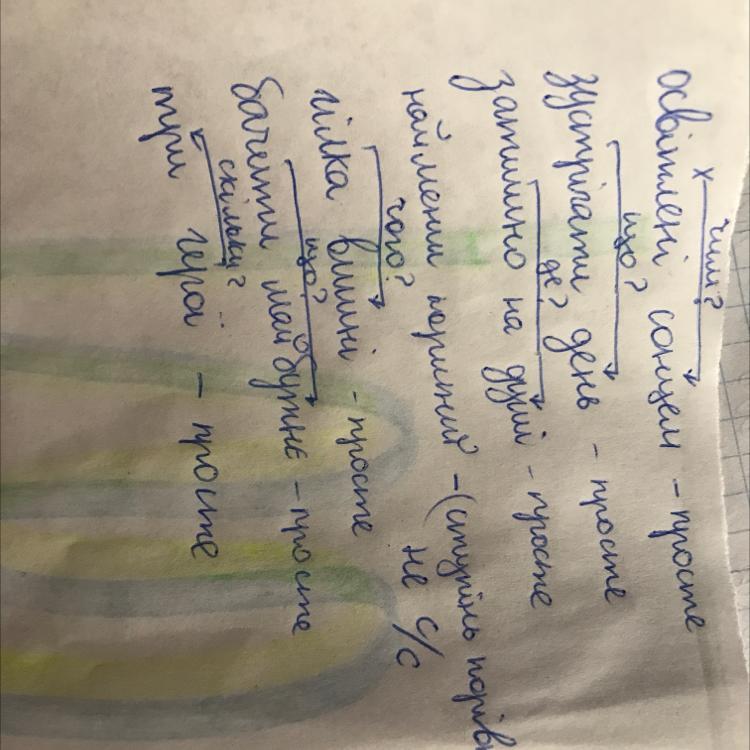 х чим?
освітлені сонцем - просте
що?
зустрічати день - просте
де?
затишно на душі - просте
найменш корисний - (ступінь порів
не с/с
чого?
гілка вишні - просте
що?
бачити майбутнє - просте
скільки?
три герої - просте